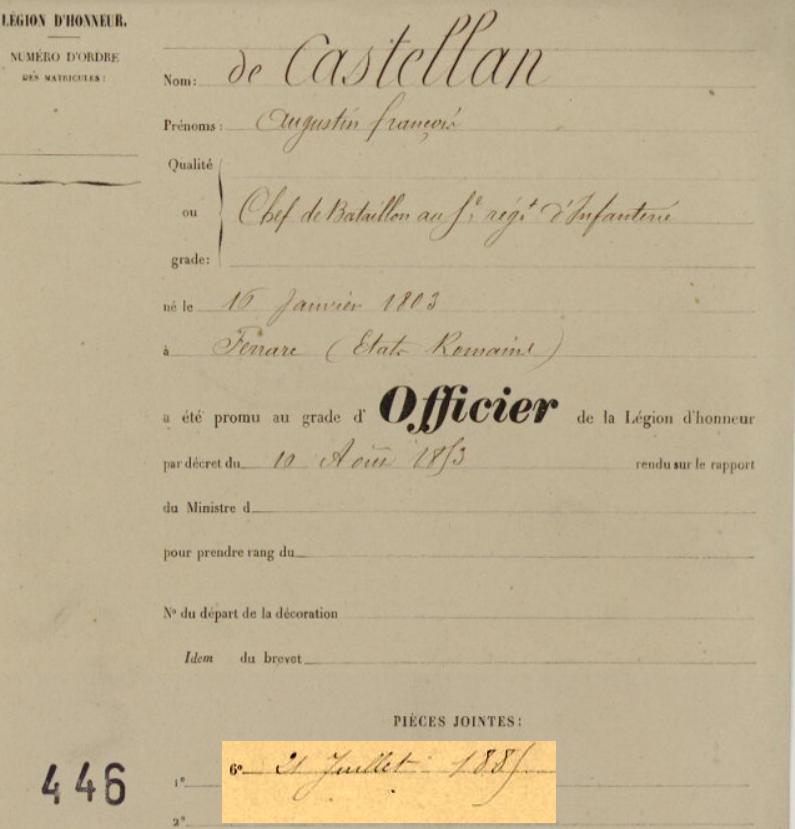 LÉGION D'HONNEUR.
NUMÉRO D'ORDRE
DES MATRICULES:
Nom: de Castellan
Prénoms: Augustin françois
Qualité
ou Chef de Bataillon au 5e, régt d'Infanterie
grade:
né le 16 Janvier 1803
à Ferrare (Etats Romains)
a été promu au grade d' Officier de la Légion d'honneur
par décret du 10 Août 1853 rendu sur le rapport
du Ministre d
pour prendre rang du
No du départ de la décoration
Idem du brevet
PIÈCES JOINTES:
446
6o 21 Juillet 1885
1o
2o